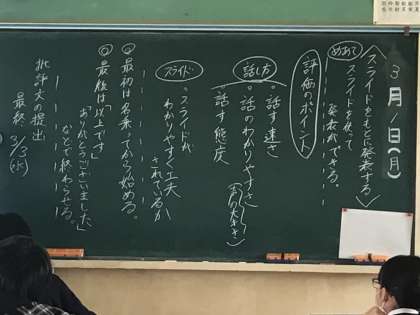 3月1日(月)
〈スライドをもとに発表する〉
めあて スライドを使って
発表ができる。
評価のポイント
話し方
・話す速さ
・話のわかりやすさ
(声の大きさ)
・話す態度
スライド
・スライドが
わかりやすく工夫
されているか
最初は名乗ってから始める。
最後は「以上です」
「ありがとうございました」
などで終わらせる。
批評文の提出
最終 3/3(水)